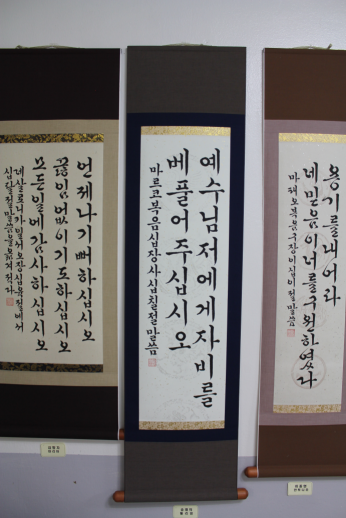 언제나 기뻐하십시오
끊임없이 기도하십시오
모든 일에 감사하십시오
예수님 저에게 자비를
베풀어 주십시오
마르코복음 십장 사십칠절 말씀
용기를 내어라
네 믿음이 너를 구원하였다
마태오복음 구장 이십이절 말씀